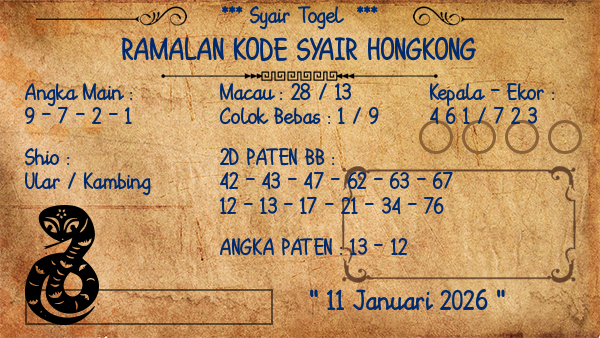 *** Syair Togel ***
RAMALAN KODE SYAIR HONGKONG
Angka Main :
9 - 7 - 2 - 1
Macau : 28 / 13
Colok Bebas : 1 / 9
Kepala - Ekor :
4 6 1 / 7 2 3
Shio :
Ular / Kambing
2D PATEN BB :
42 - 43 - 47 - 62 - 63 - 67
12 - 13 - 17 - 21 - 34 - 76
ANGKA PATEN : 13 - 12
" 11 Januari 2026 "